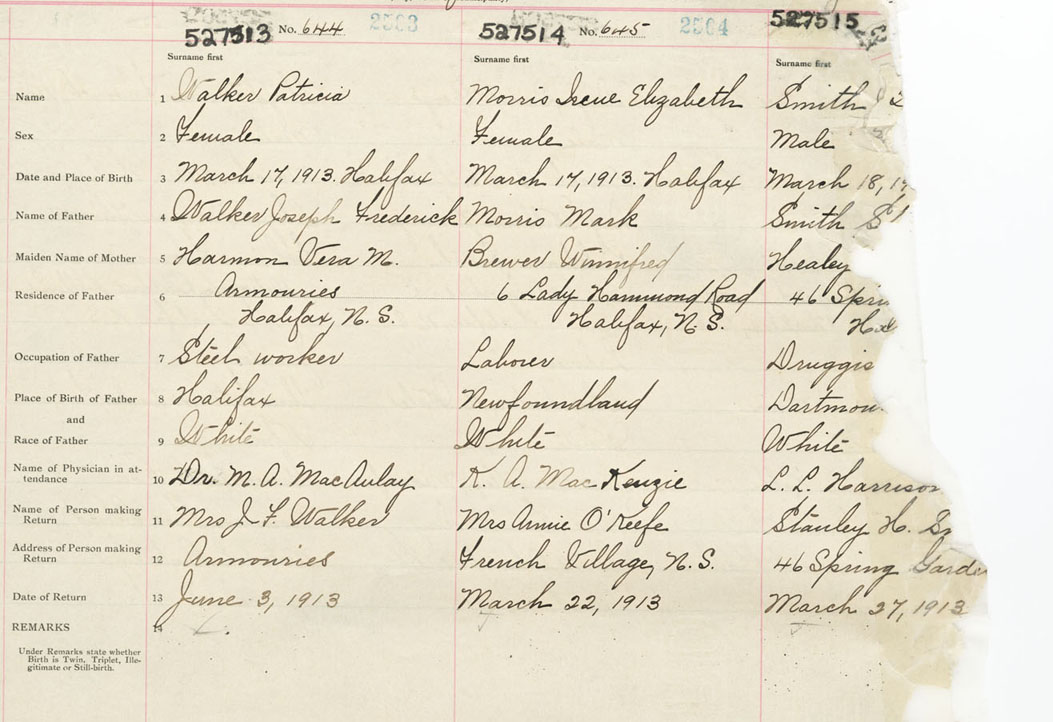 527513 No. 644 2503 527514 No. 645 2504 527515
Surname first Surname first Surname first
Name 1 Walker Patricia Morris Irene Elizabeth Smith
Sex 2 Female Female Male
Date and Place of Birth 3 March 17, 1913. Halifax March 17, 1913. Halifax March 18, 19
Name of Father 4 Walker Joseph Frederick Morris Mark Smith S
Maiden Name of Mother 5 Harmon Vera M. Brewer Winnifred Healey
Residence of Father 6 Armouries 6 Lady Hammond Road 46 Sprin
Halifax, N.S. Halifax, N.S. Hal
Occupation of Father 7 Steel worker Laborer Druggis
Place of Birth of Father 8 Halifax Newfoundland Dartmou
and
Race of Father 9 White White White
Name of Physician in at-
tendance 10 Dr. M. A. MacAulay K. A. MacKenzie L. L. Harrison
Name of Person making
Return 11 Mrs J. F. Walker Mrs Annie O'Keefe Stanley H. S
Address of Person making
Return 12 Armouries French Village, N.S. 46 Spring Garde
Date of Return 13 June 3, 1913 March 22, 1913 March 27, 1913
REMARKS 14
Under Remarks state whether
Birth is Twin, Triplet, Ille-
gitimate or Still-birth.